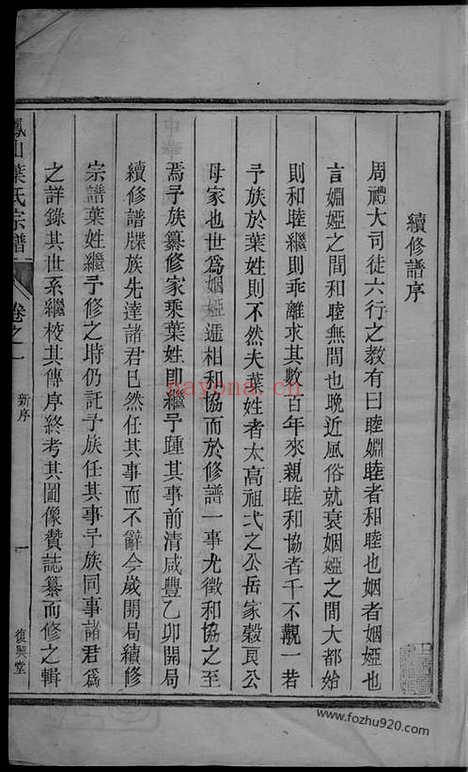 續修譜序
周禮大司徒六行之教有曰睦婣睦者和睦也姻者姻婭也
言婣婭之間和睦無間也晚近風俗就衰姻婭之間大都始
則和睦繼則乖離求其數百年來親睦和協者千不觀一若
予族於葉姓則不然夫葉姓者太高祖弌之公岳家榖艮公
母家也世爲姻婭遞相和協而於修譜一事尤徵和協之至
焉予族纂修家乘葉姓則繼予踵其事前清咸豐乙卯開局
續修譜牒族先達諸君已然任其事而不辭今歲開局續修
宗譜葉姓繼予修之時仍託予族任其事予族同事諸君爲
之詳錄其世系繼校其傳序終考其圖像贊誌纂而修之輯
鳳山葉氏宗譜
卷之一
新序
一
復興堂
nayona.cn
www.fozhu920.com